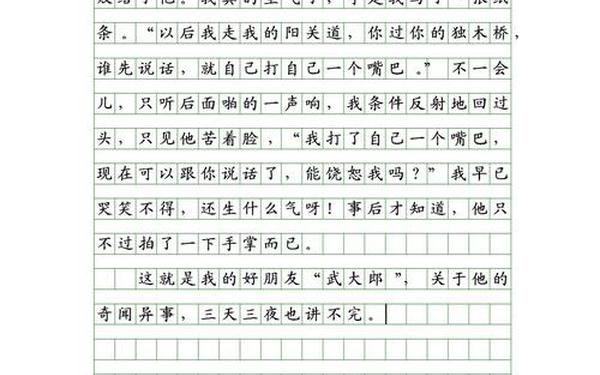 条。“以后我走我的阳关道，你过你的独木桥，
谁先说话，就自己打自己一个嘴巴。”不一会
儿，只听后面啪的一声响，我条件反射地回过
头，只见他苦着脸，“我打了自己一个嘴巴，
现在可以跟你说话了，能饶恕我吗？”我早已
哭笑不得，还生什么气呀！事后才知道，他只
不过拍了一下手掌而已。
这就是我的好朋友“武大郎”，关于他的
奇闻异事，三天三夜也讲不完。